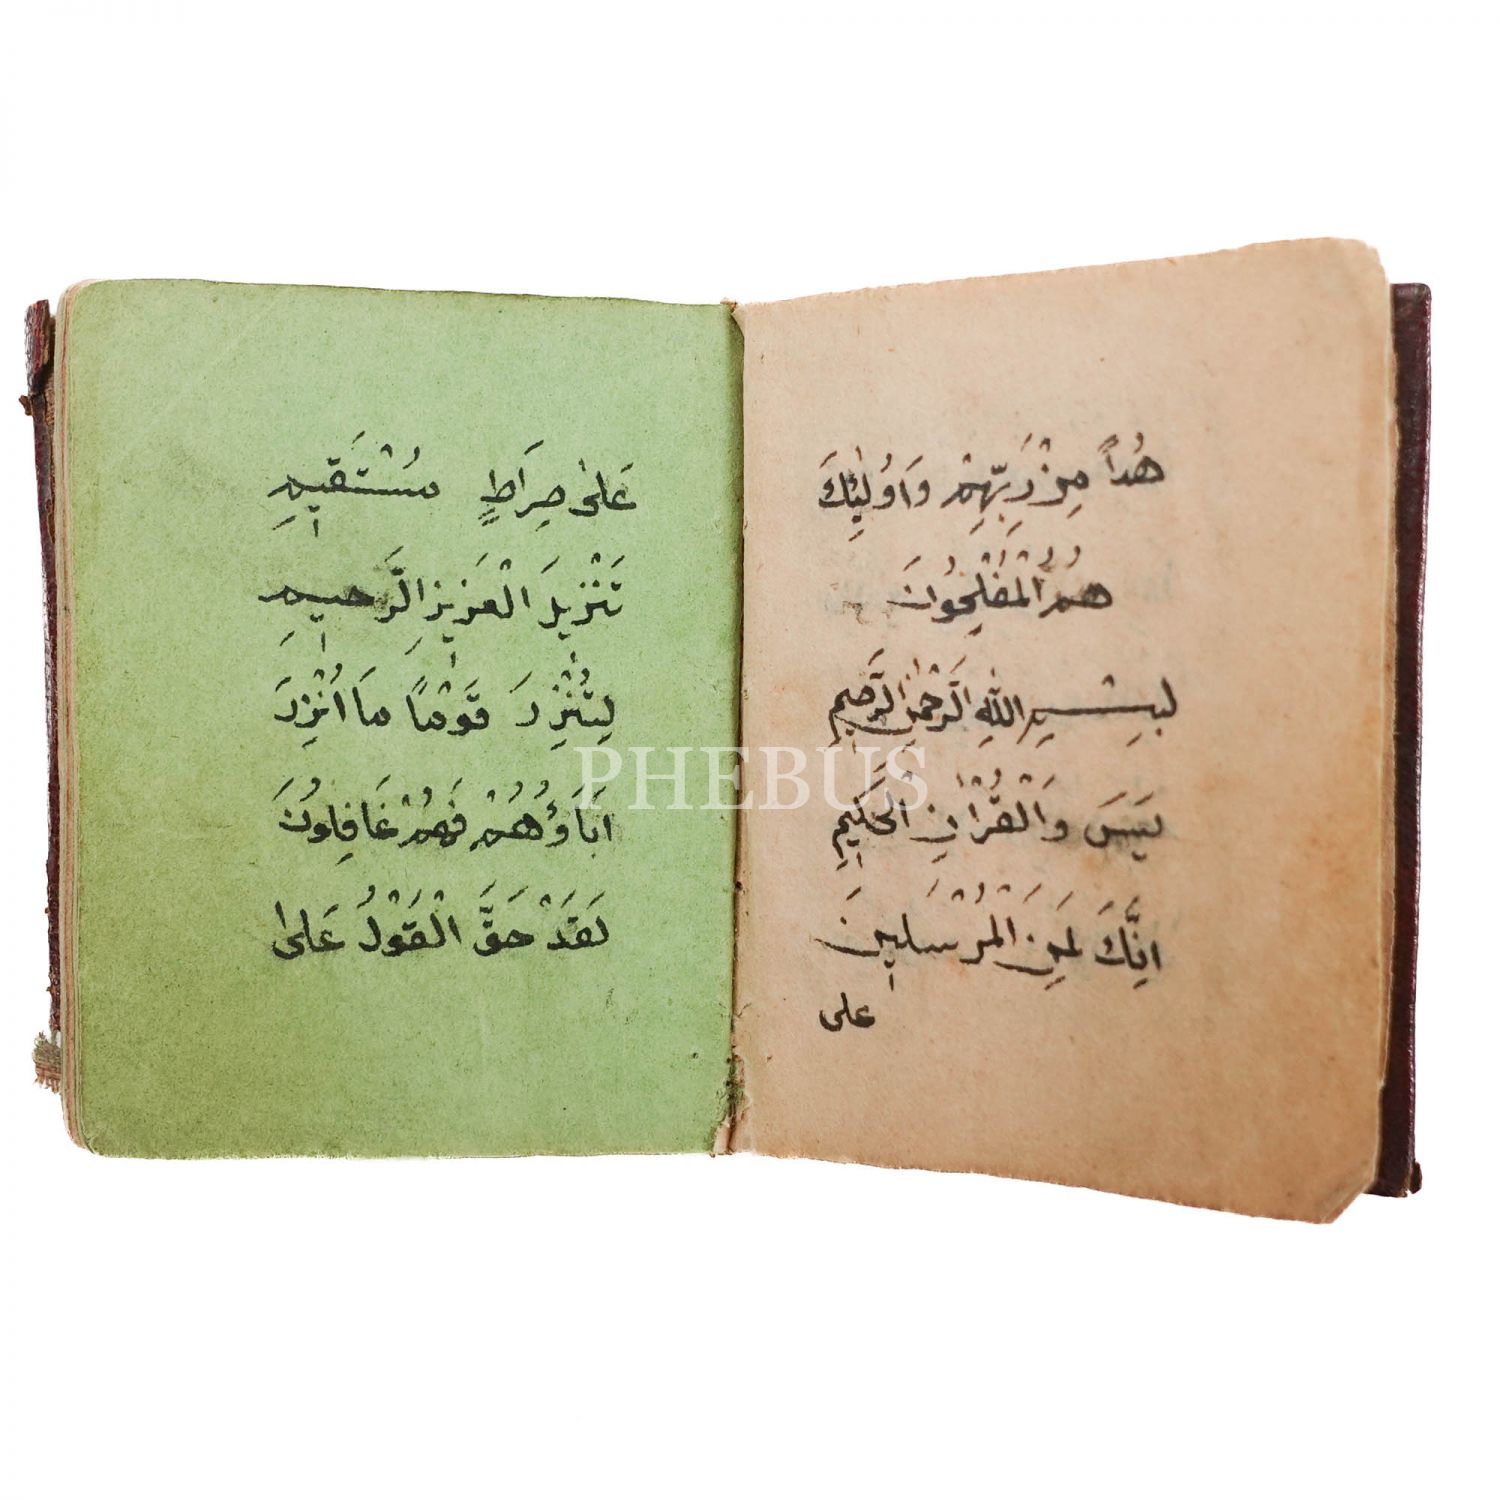 هُداً مِنْ رَبِّهِمْ وَاُولٰئِكَ
هُمُ الْمُفْلِحُونَ
بِسْمِ اللّٰهِ الرَّحْمٰنِ الرَّحِيمِ
يٰسَ وَالْقُرْاٰنِ الْحَكِيمِ
اِنَّكَ لَمِنَ الْمُرْسَلِينَ
على
عَلٰى صِرَاطٍ مُسْتَقِيمٍ
تَنْزِيلَ الْعَزِيزِ الرَّحِيمِ
لِتُنْذِرَ قَوْمًا مَا اُنْذِرَ
اٰبَاؤُهُمْ فَهُمْ غَافِلُونَ
لَقَدْ حَقَّ الْقَوْلُ عَلٰى
PHEBUS